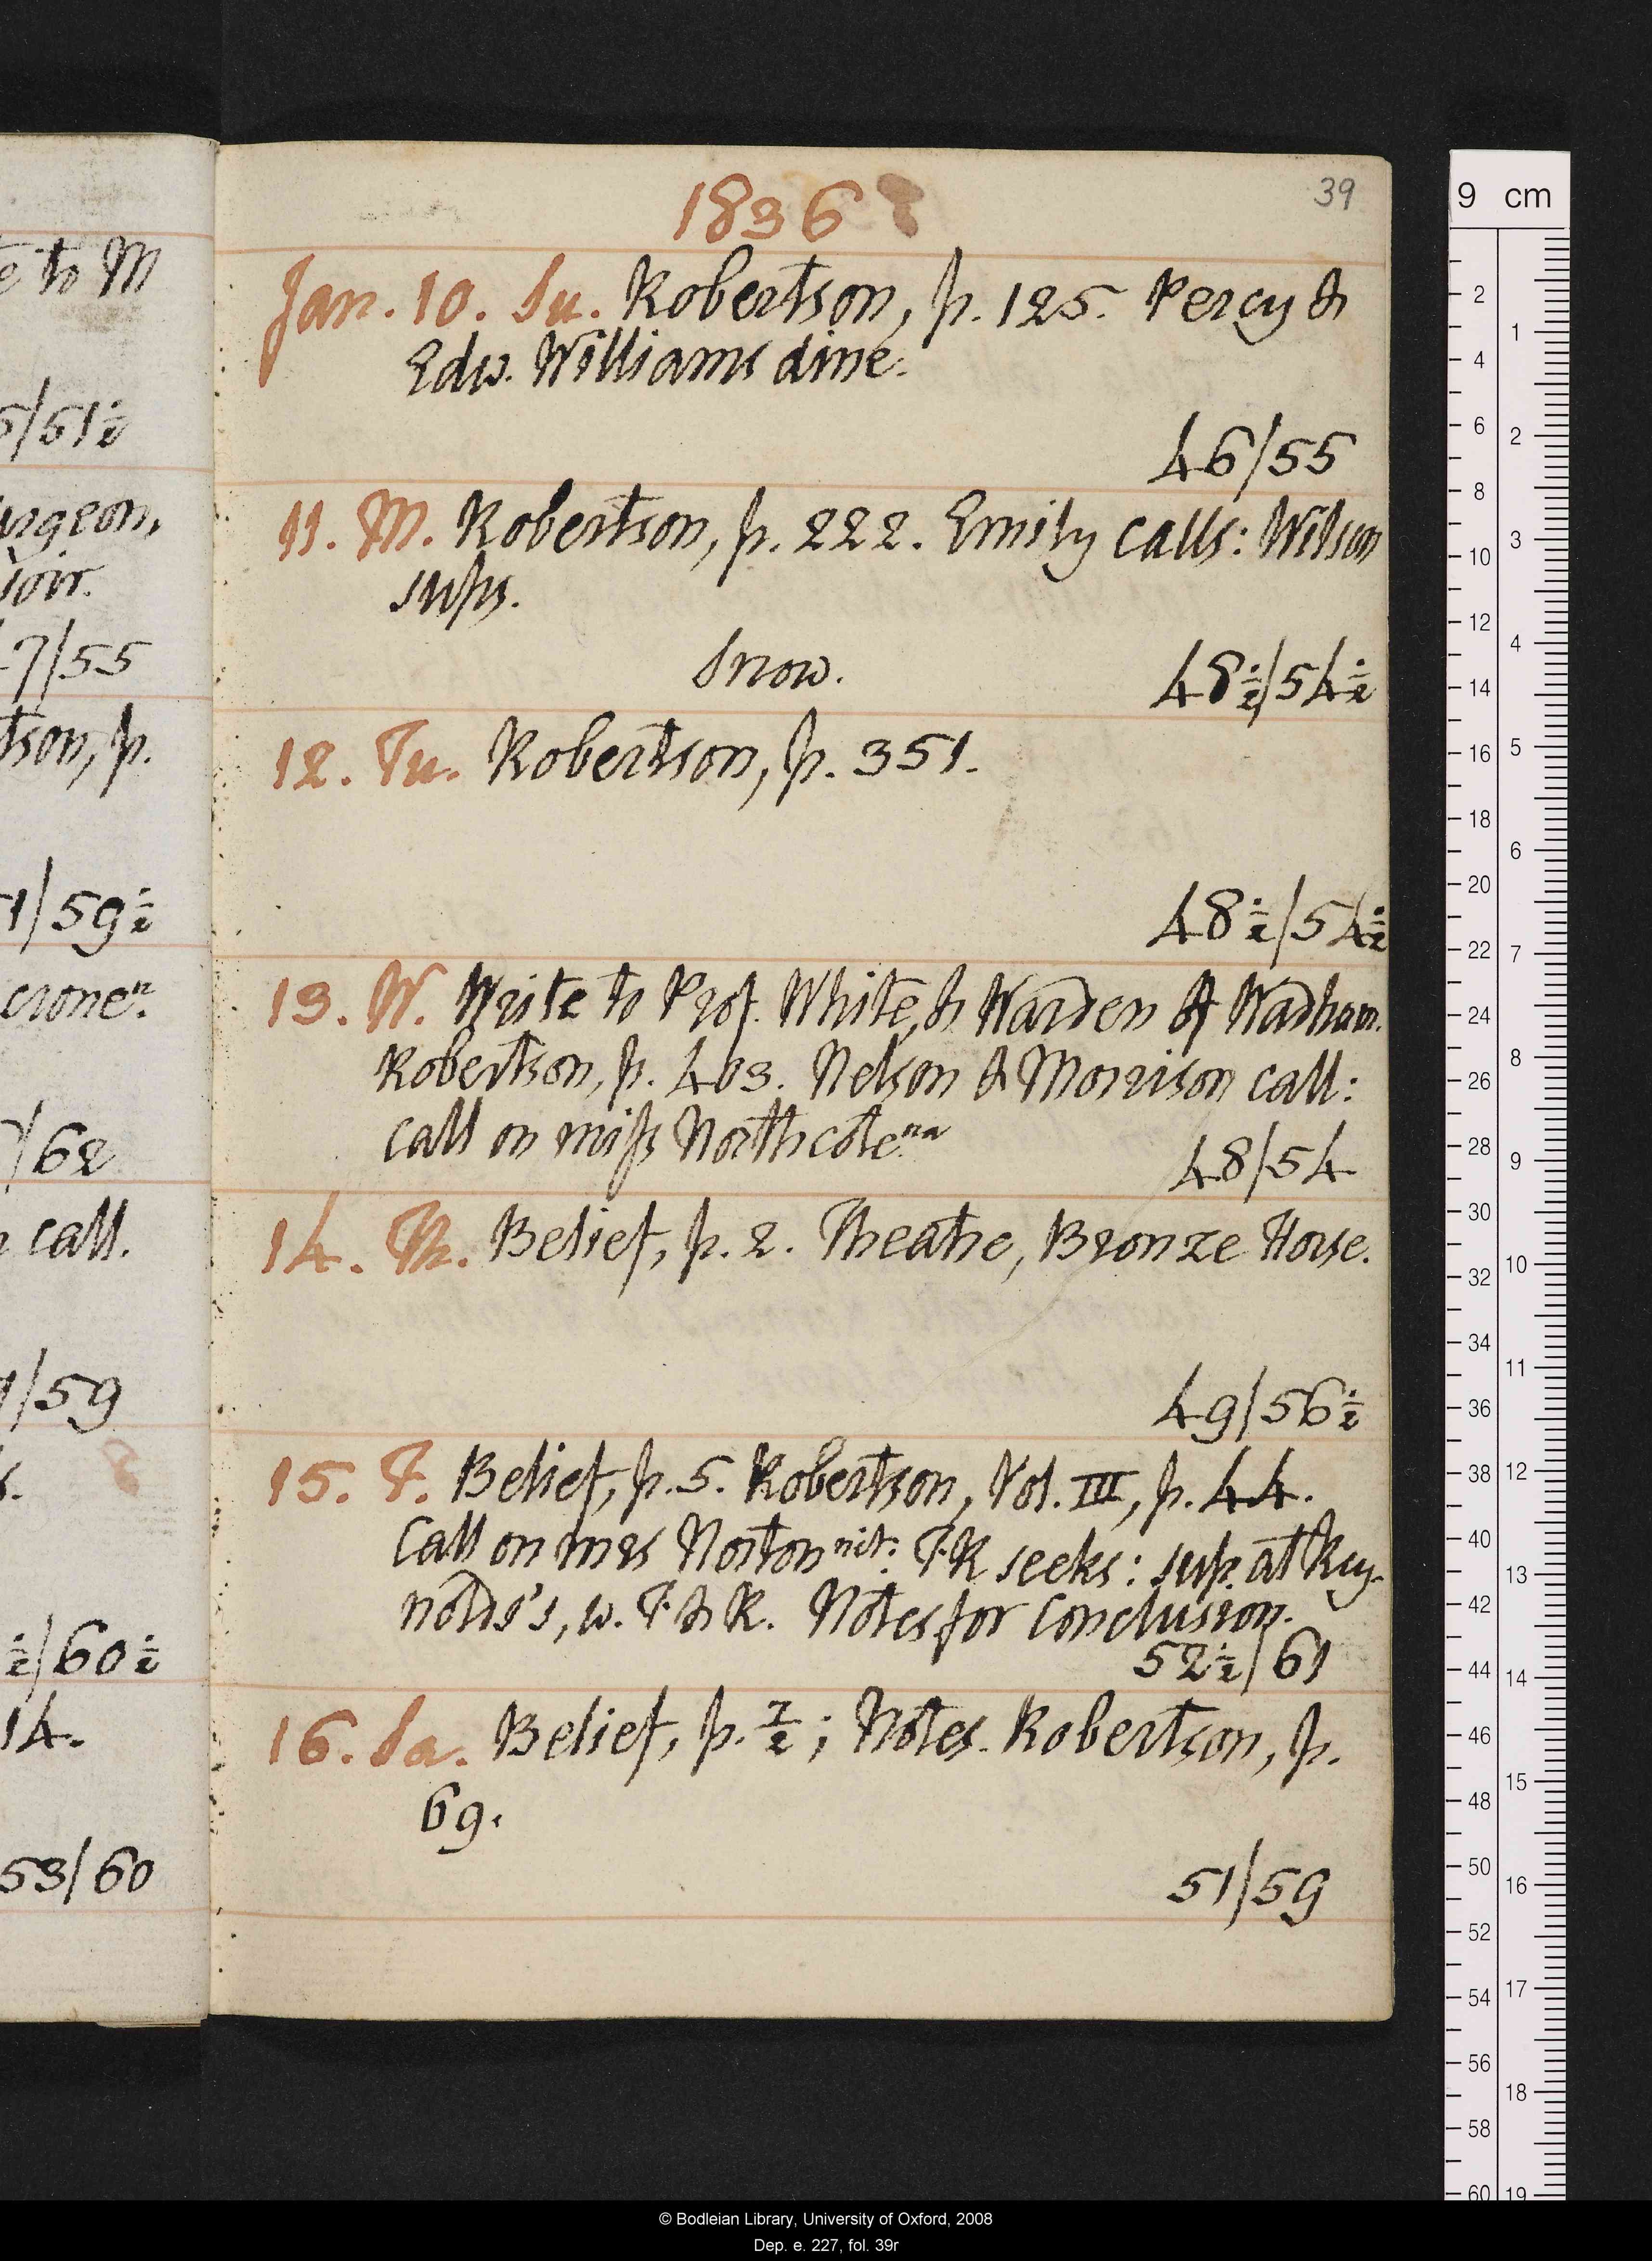 e to M
5/51½
urgeon,
ioir.
47/55
tson, p.
1/59½
cronen.
/62
call.
1/59
s.
½/60½
14.
53/60
1836
39
Jan. 10. Su. Robertson, p. 125. Percy &
Edw. Williams dine.
46/55
11. M. Robertson, p. 222. Emily calls: Wilson
sups.
Snow.
48½/54½
12. Tu. Robertson, p. 351.
48½/54½
13. W. Write to Prof. White, & Warden of Wadham.
Robertson, p. 403. Nelson & Morrison call:
call on miss Northcote na
48/54
14. Th. Belief, p. 2. Theatre, Bronze Horse.
49/56½
15. F. Belief, p. 5. Robertson, Vol. III, p. 44.
Call on mrs Norton nit: T.R seeks: sup at Rey-
nolds's, w. T. & R. Notes for Conclusion.
52½/61
16. Sa. Belief, p. 7/2; Notes. Robertson, p.
69.
51/59
9 cm
2 4 6 8 10 12 14 16 18 20 22 24 26 28 30 32 34 36 38 40 42 44 46 48 50 52 54 56 58 60
1 2 3 4 5 6 7 8 9 10 11 12 13 14 15 16 17 18 19
© Bodleian Library, University of Oxford, 2008
Dep. e. 227, fol. 39r